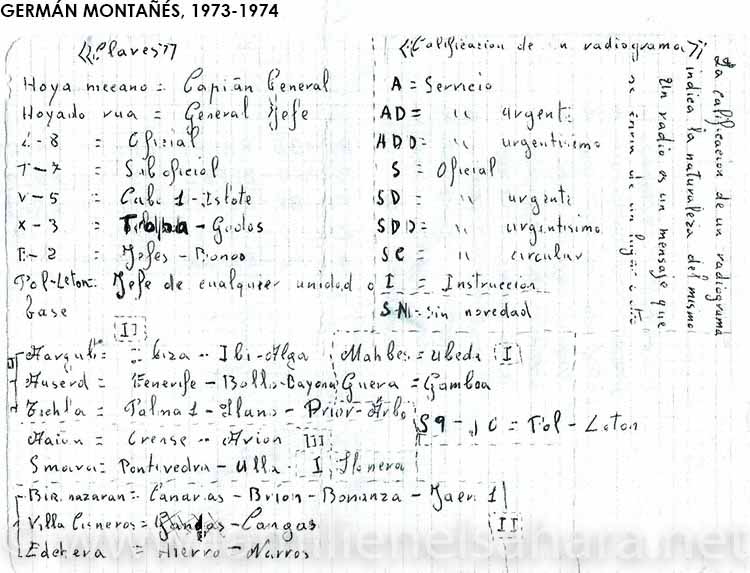 GERMÁN MONTAÑÉS, 1973-1974
«Claves»
Hoya meccano = Capitán General
Hoyado rua = General Jefe
= Oficial
T-7 = Suboficial
V-5 = Cabo 1-Islote
X-3 = - Godos
= Jefes -
Pol-Leton: Jefe de cualquier unidad o
base
II
= - Ibi-Alga
Auserd = Tenerife - Bollo-Bayona
Tichla = Palma 1 - Llano - Prior -
= Orense - Avion III
Smara = Pontevedra - Ulla - I
Bir nazaran = Canarias - Brion - Bonanza - Jaen 1
Villa Cisneros = - Cangas
II
Edchera = Hierro - Narros
«Calificacion de un radiograma»
A = Servicio
AD = " urgente
ADD = " urgentisimo
S = Oficial
SD = " urgente
SDD = " urgentisimo
SC = " circular
I = Instruccion
SN = Sin novedad
Mahbes = Ubeda I
Guera = Gamboa
= Pol - Leton
La calificacion de un radiograma
indica la naturaleza del mismo
Un radio es un mensaje que
se envia de un lugar a otro
www.
elsahara.net